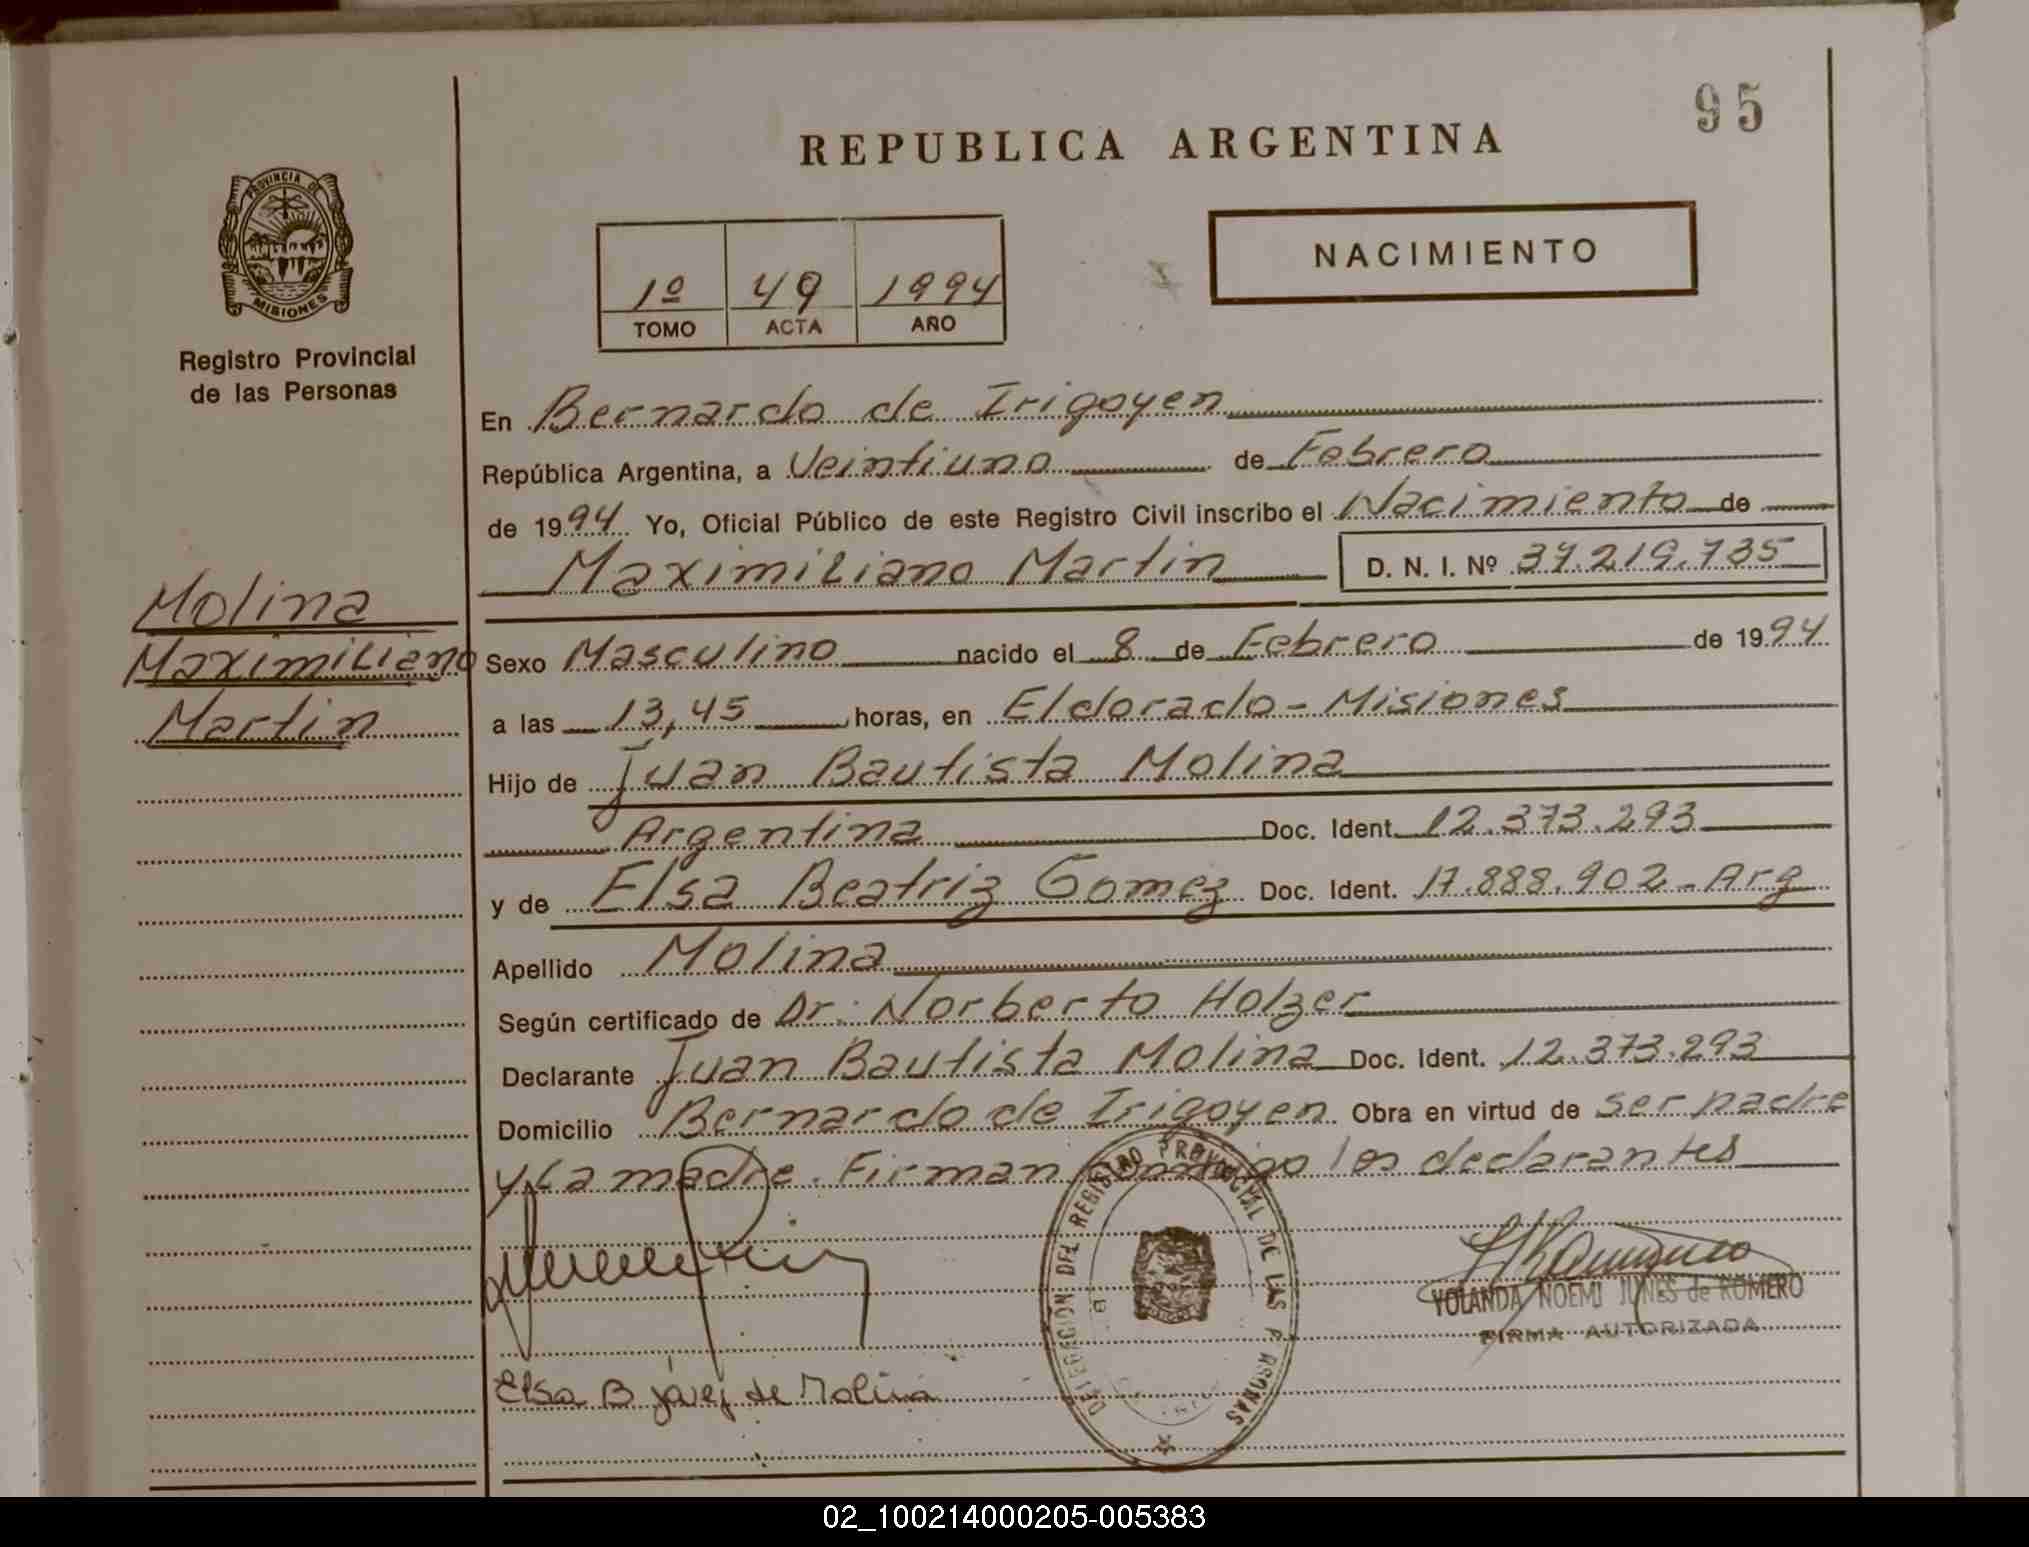 95
REPUBLICA ARGENTINA
PROVINCIA DE
MISIONES
Registro Provincial
de las Personas
NACIMIENTO
1º 49 1994
TOMO ACTA AÑO
En Bernardo de Irigoyen
República Argentina, a Veintiuno de Febrero
de 1994 Yo, Oficial Público de este Registro Civil inscribo el Nacimiento de
Maximiliano Martin D. N. I. Nº 37.219.735
Molina
Maximiliano
Martin
Sexo Masculino nacido el 8 de Febrero de 1994
a las 13,45 horas, en Eldorado - Misiones
Hijo de Juan Bautista Molina
Argentina Doc. Ident. 12.373.293
y de Elsa Beatriz Gomez Doc. Ident. 17.888.902 - Arg
Apellido Molina
Según certificado de Dr: Norberto Holzer
Declarante Juan Bautista Molina Doc. Ident. 12.373.293
Domicilio Bernardo de Irigoyen Obra en virtud de ser padre
y La madre. Firman conmigo los declarantes
DELEGACION DEL REGISTRO PROVINCIAL DE LAS PERSONAS
YOLANDA NOEMI de ROMERO
FIRMA AUTORIZADA
Elsa B de Molina
02_100214000205-005383